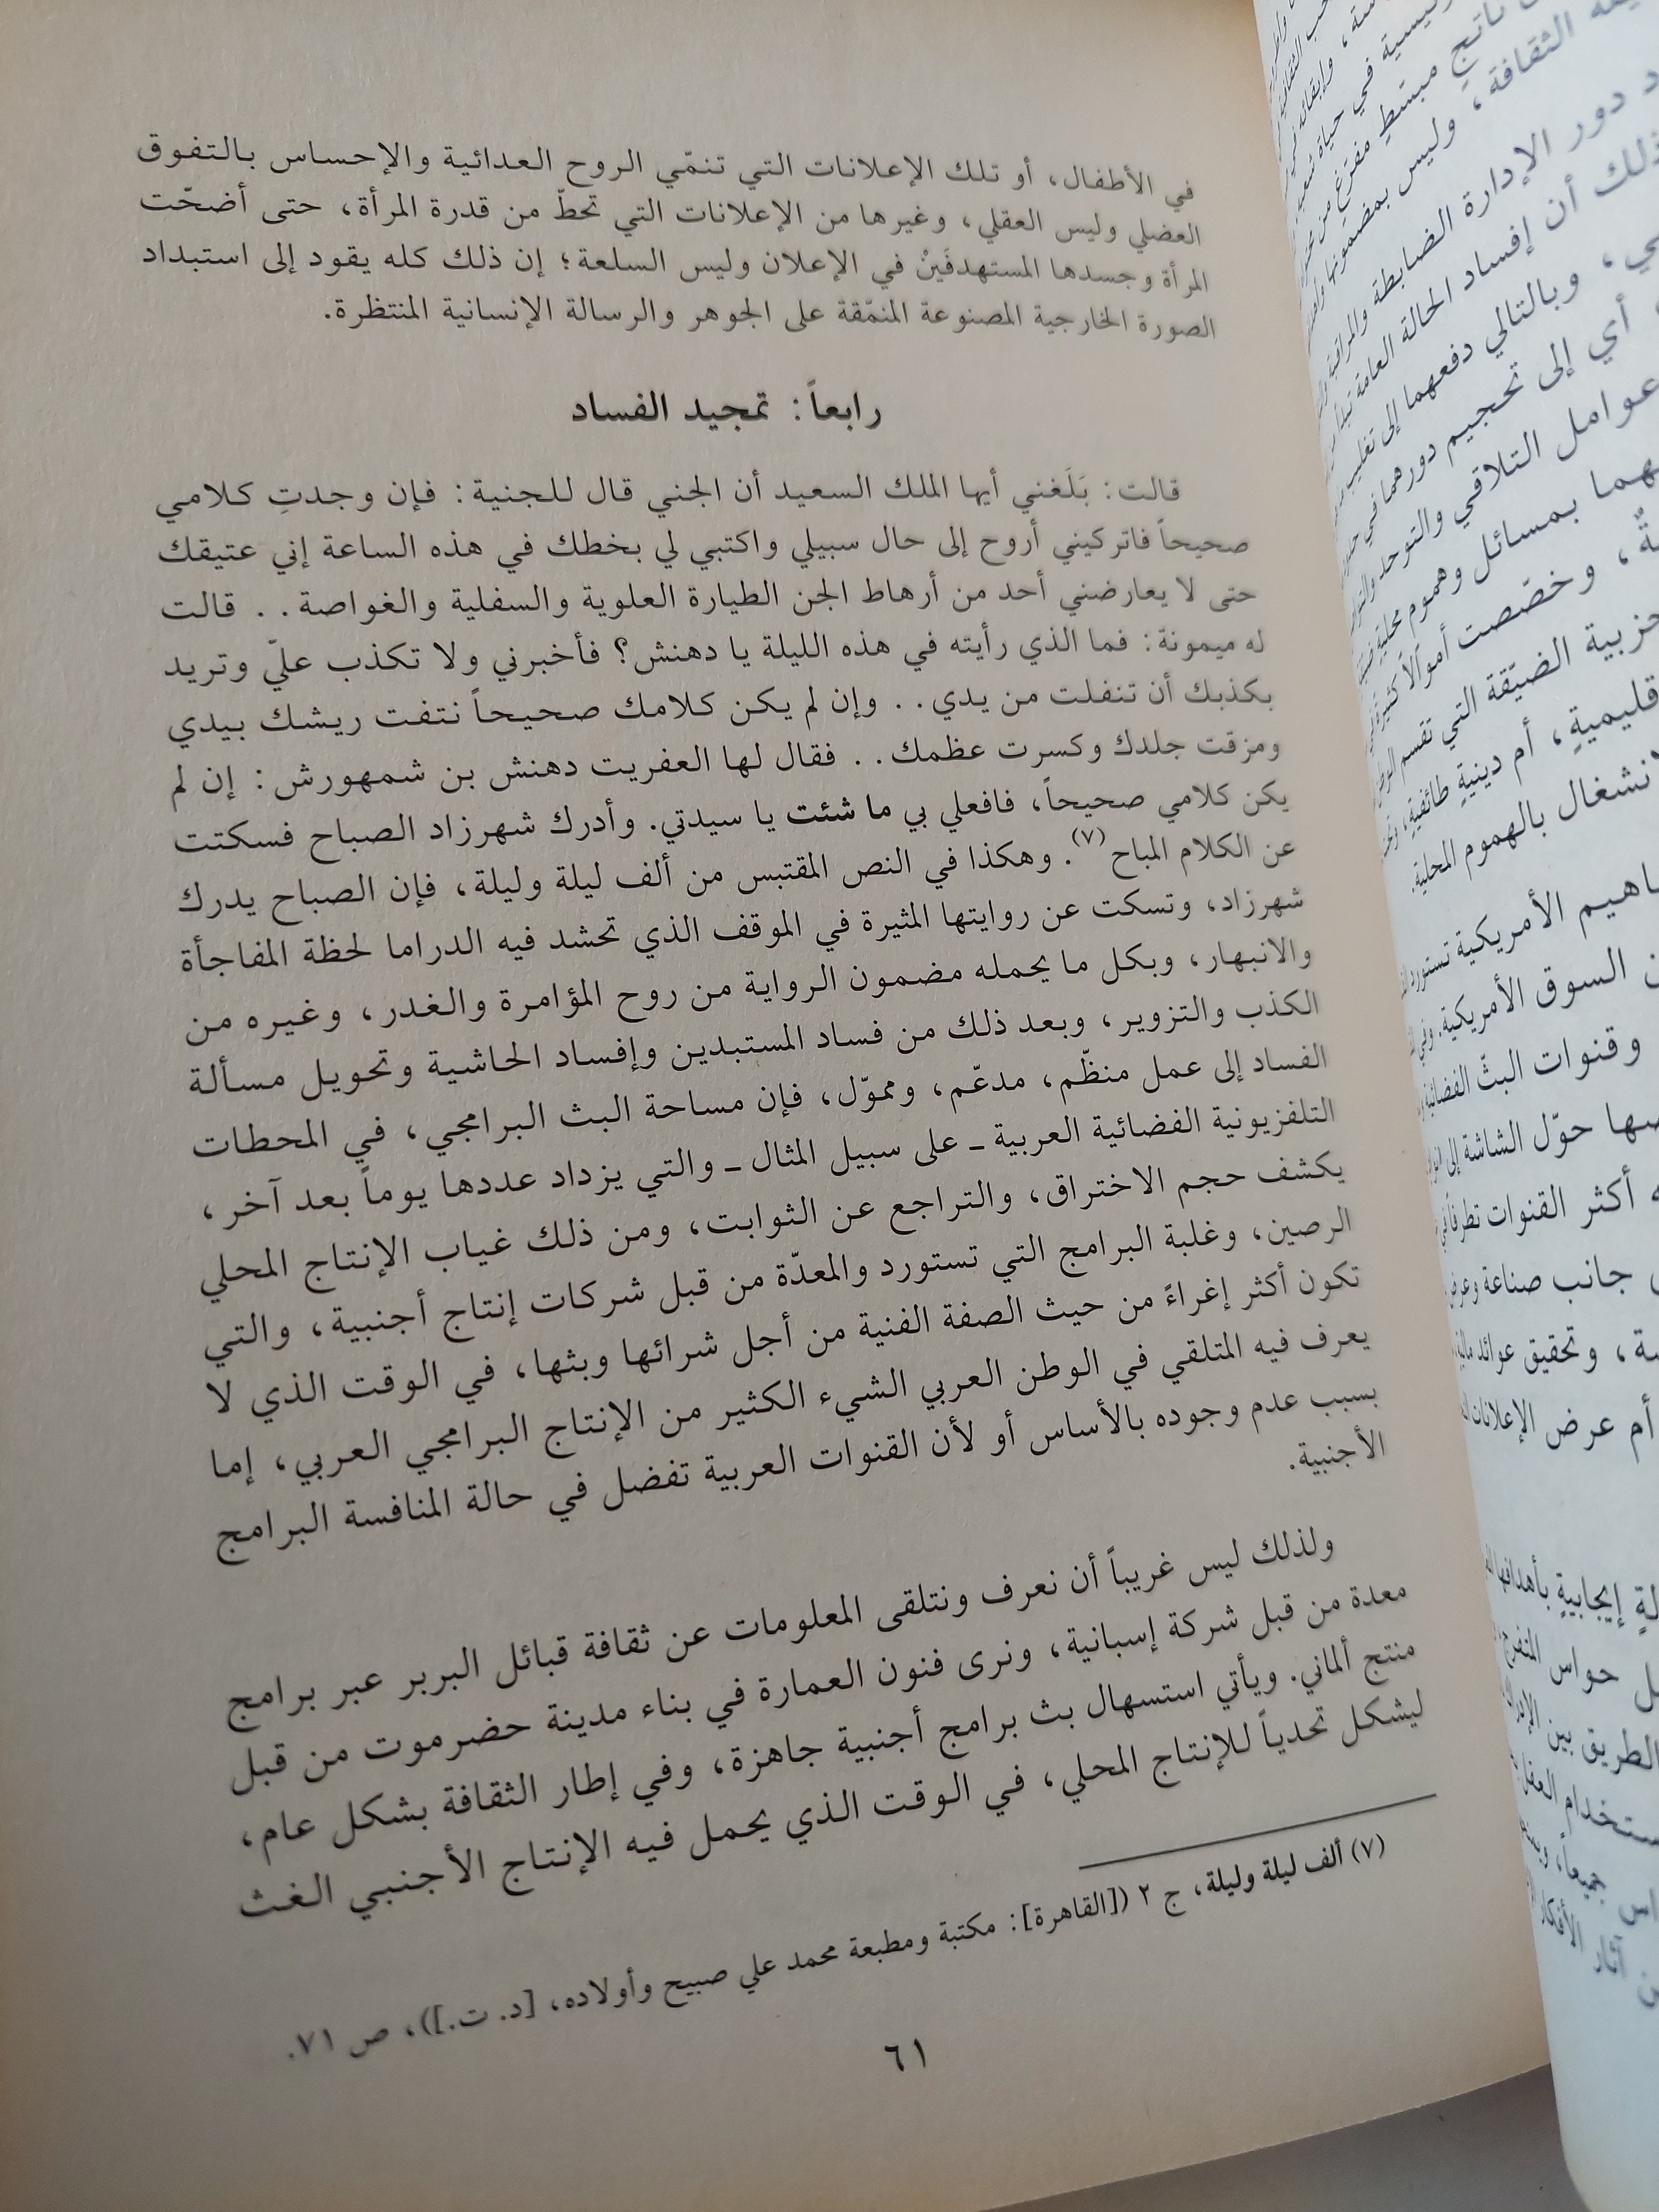 في الأطفال، أو تلك الإعلانات التي تنمّي الروح العدائية والإحساس بالتفوق
العضلي وليس العقلي، وغيرها من الإعلانات التي تحطّ من قدرة المرأة، حتى أضحّت
المرأة وجسدها المستهدفَينْ في الإعلان وليس السلعة؛ إن ذلك كله يقود إلى استبداد
الصورة الخارجية المصنوعة المنمّقة على الجوهر والرسالة الإنسانية المنتظرة.
رابعاً: تمجيد الفساد
قالت: بَلَغني أيها الملك السعيد أن الجني قال للجنية: فإن وجدتِ كلامي
صحيحاً فاتركيني أروح إلى حال سبيلي واكتبي لي بخطك في هذه الساعة إني عتيقك
حتى لا يعارضني أحد من أرهاط الجن الطيارة العلوية والسفلية والغواصة.. قالت
له ميمونة: فما الذي رأيته في هذه الليلة يا دهنش؟ فأخبرني ولا تكذب عليّ وتريد
بكذبك أن تنفلت من يدي.. وإن لم يكن كلامك صحيحاً نتفت ريشك بيدي
ومزقت جلدك وكسرت عظمك.. فقال لها العفريت دهنش بن شمهورش: إن لم
يكن كلامي صحيحاً، فافعلي بي ما شئت يا سيدتي. وأدرك شهرزاد الصباح فسكتت
عن الكلام المباح(٧). وهكذا في النص المقتبس من ألف ليلة وليلة، فإن الصباح يدرك
شهرزاد، وتسكت عن روايتها المثيرة في الموقف الذي تحشد فيه الدراما لحظة المفاجأة
والانبهار، وبكل ما يحمله مضمون الرواية من روح المؤامرة والغدر، وغيره من
الكذب والتزوير، وبعد ذلك من فساد المستبدين وإفساد الحاشية وتحويل مسألة
الفساد إلى عمل منظّم، مدعّم، ومموّل، فإن مساحة البث البرامجي، في المحطات
التلفزيونية الفضائية العربية ـ على سبيل المثال ـ والتي يزداد عددها يوماً بعد آخر،
يكشف حجم الاختراق، والتراجع عن الثوابت، ومن ذلك غياب الإنتاج المحلي
الرصين، وغلبة البرامج التي تستورد والمعدّة من قبل شركات إنتاج أجنبية، والتي
تكون أكثر إغراءً من حيث الصفة الفنية من أجل شرائها وبثها، في الوقت الذي لا
يعرف فيه المتلقي في الوطن العربي الشيء الكثير من الإنتاج البرامجي العربي، إما
بسبب عدم وجوده بالأساس أو لأن القنوات العربية تفضل في حالة المنافسة البرامج
الأجنبية.
ولذلك ليس غريباً أن نعرف ونتلقى المعلومات عن ثقافة قبائل البربر عبر برامج
معدة من قبل شركة إسبانية، ونرى فنون العمارة في بناء مدينة حضرموت من قبل
منتج ألماني. ويأتي استسهال بث برامج أجنبية جاهزة، وفي إطار الثقافة بشكل عام،
ليشكل تحدياً للإنتاج المحلي، في الوقت الذي يحمل فيه الإنتاج الأجنبي الغث
(٧) ألف ليلة وليلة، ج ٢ ([القاهرة]: مكتبة ومطبعة محمد علي صبيح وأولاده، [د. ت.])، ص ٧١.
٦١
الثقافة، وليس
د دور الإدارة الضابطة
ذلك أن إفساد الحالة العامة
وبالتالي دفعهما إلى
أي إلى تحجيم دورهما في
عوامل التلاقي والتوحد
بمسائل وهموم محلية
وخصّصت أموالاً كثيرة
الضيّقة التي تقسم الوطن
أم دينيةٍ طائفيةٍ،
بالهموم المحلية.
الأمريكية تستورد
السوق الأمريكية. وفي
وقنوات البثّ الفضائية
حوّل الشاشة إلى
أكثر القنوات تطرفاً في
جانب صناعة
وتحقيق عوائد مالية
أم عرض الإعلانات
إيجابيةٍ بأهدافها
حواس المتفرج
الطريق بين
العقل
جميعاً،
آثار الأفكار